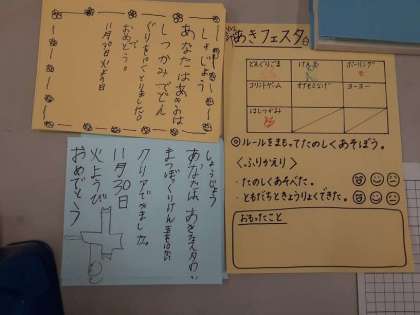 しょうじょう
あなたはあきの
しつかみでどん
ぐりを
とりました。
で
おめでとう。
11月30日火よう日
しょうじょう
あなたは、あきフェスタの
まつぼっくりけん玉を
クリアできました。
11月30日
火ようび
おめでとう
あきフェスタ
どんぐりごま
けん玉
ボーリング
プリントゲーム
ヨーヨー
はしつかみ
◎ルールをまもってたのしくあそぼう。
<ふりかえり>
・たのしくあそべた。
・ともだちときょうりょくできた。
おもったこと